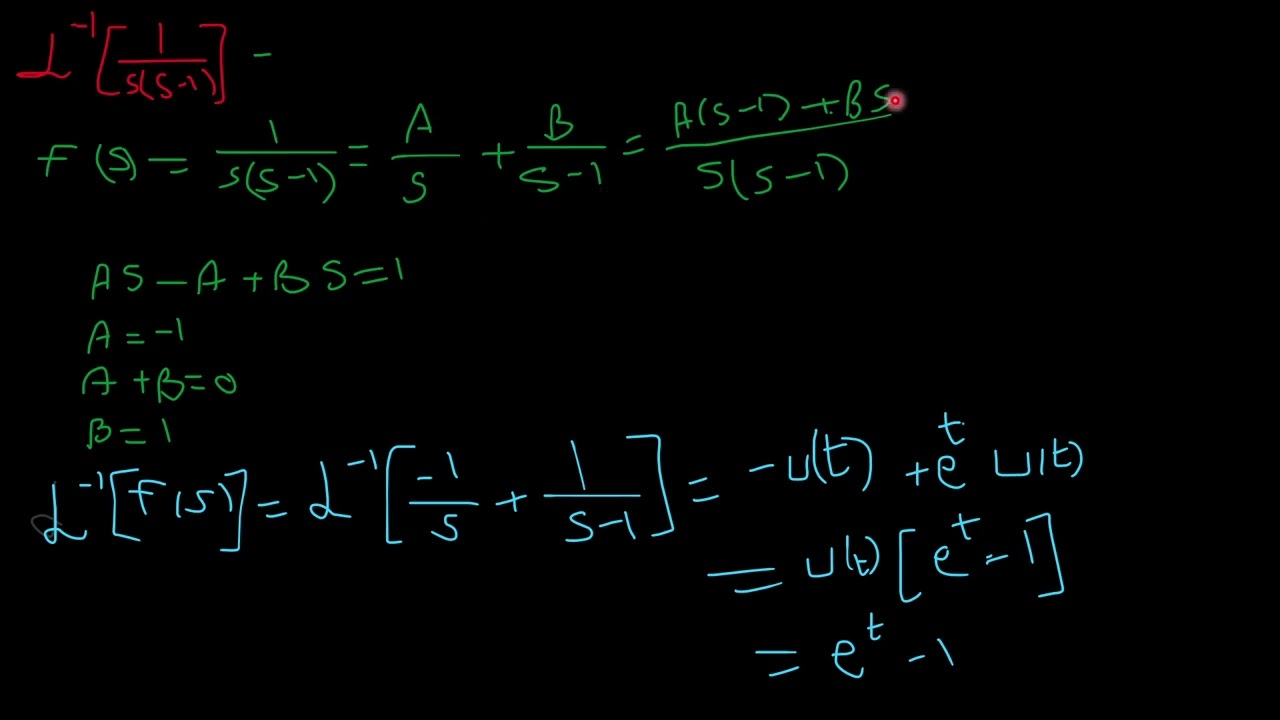 L⁻¹[1/(s(s-1))] -
F(s) = 1/(s(s-1)) = A/s + B/(s-1) = (A(s-1) + BS)/(S(s-1))
AS - A + BS = 1
A = -1
A + B = 0
B = 1
L⁻¹[F(s)] = L⁻¹[-1/s + 1/(s-1)] = -u(t) + e^t u(t)
= u(t)[e^t - 1]
= e^t - 1